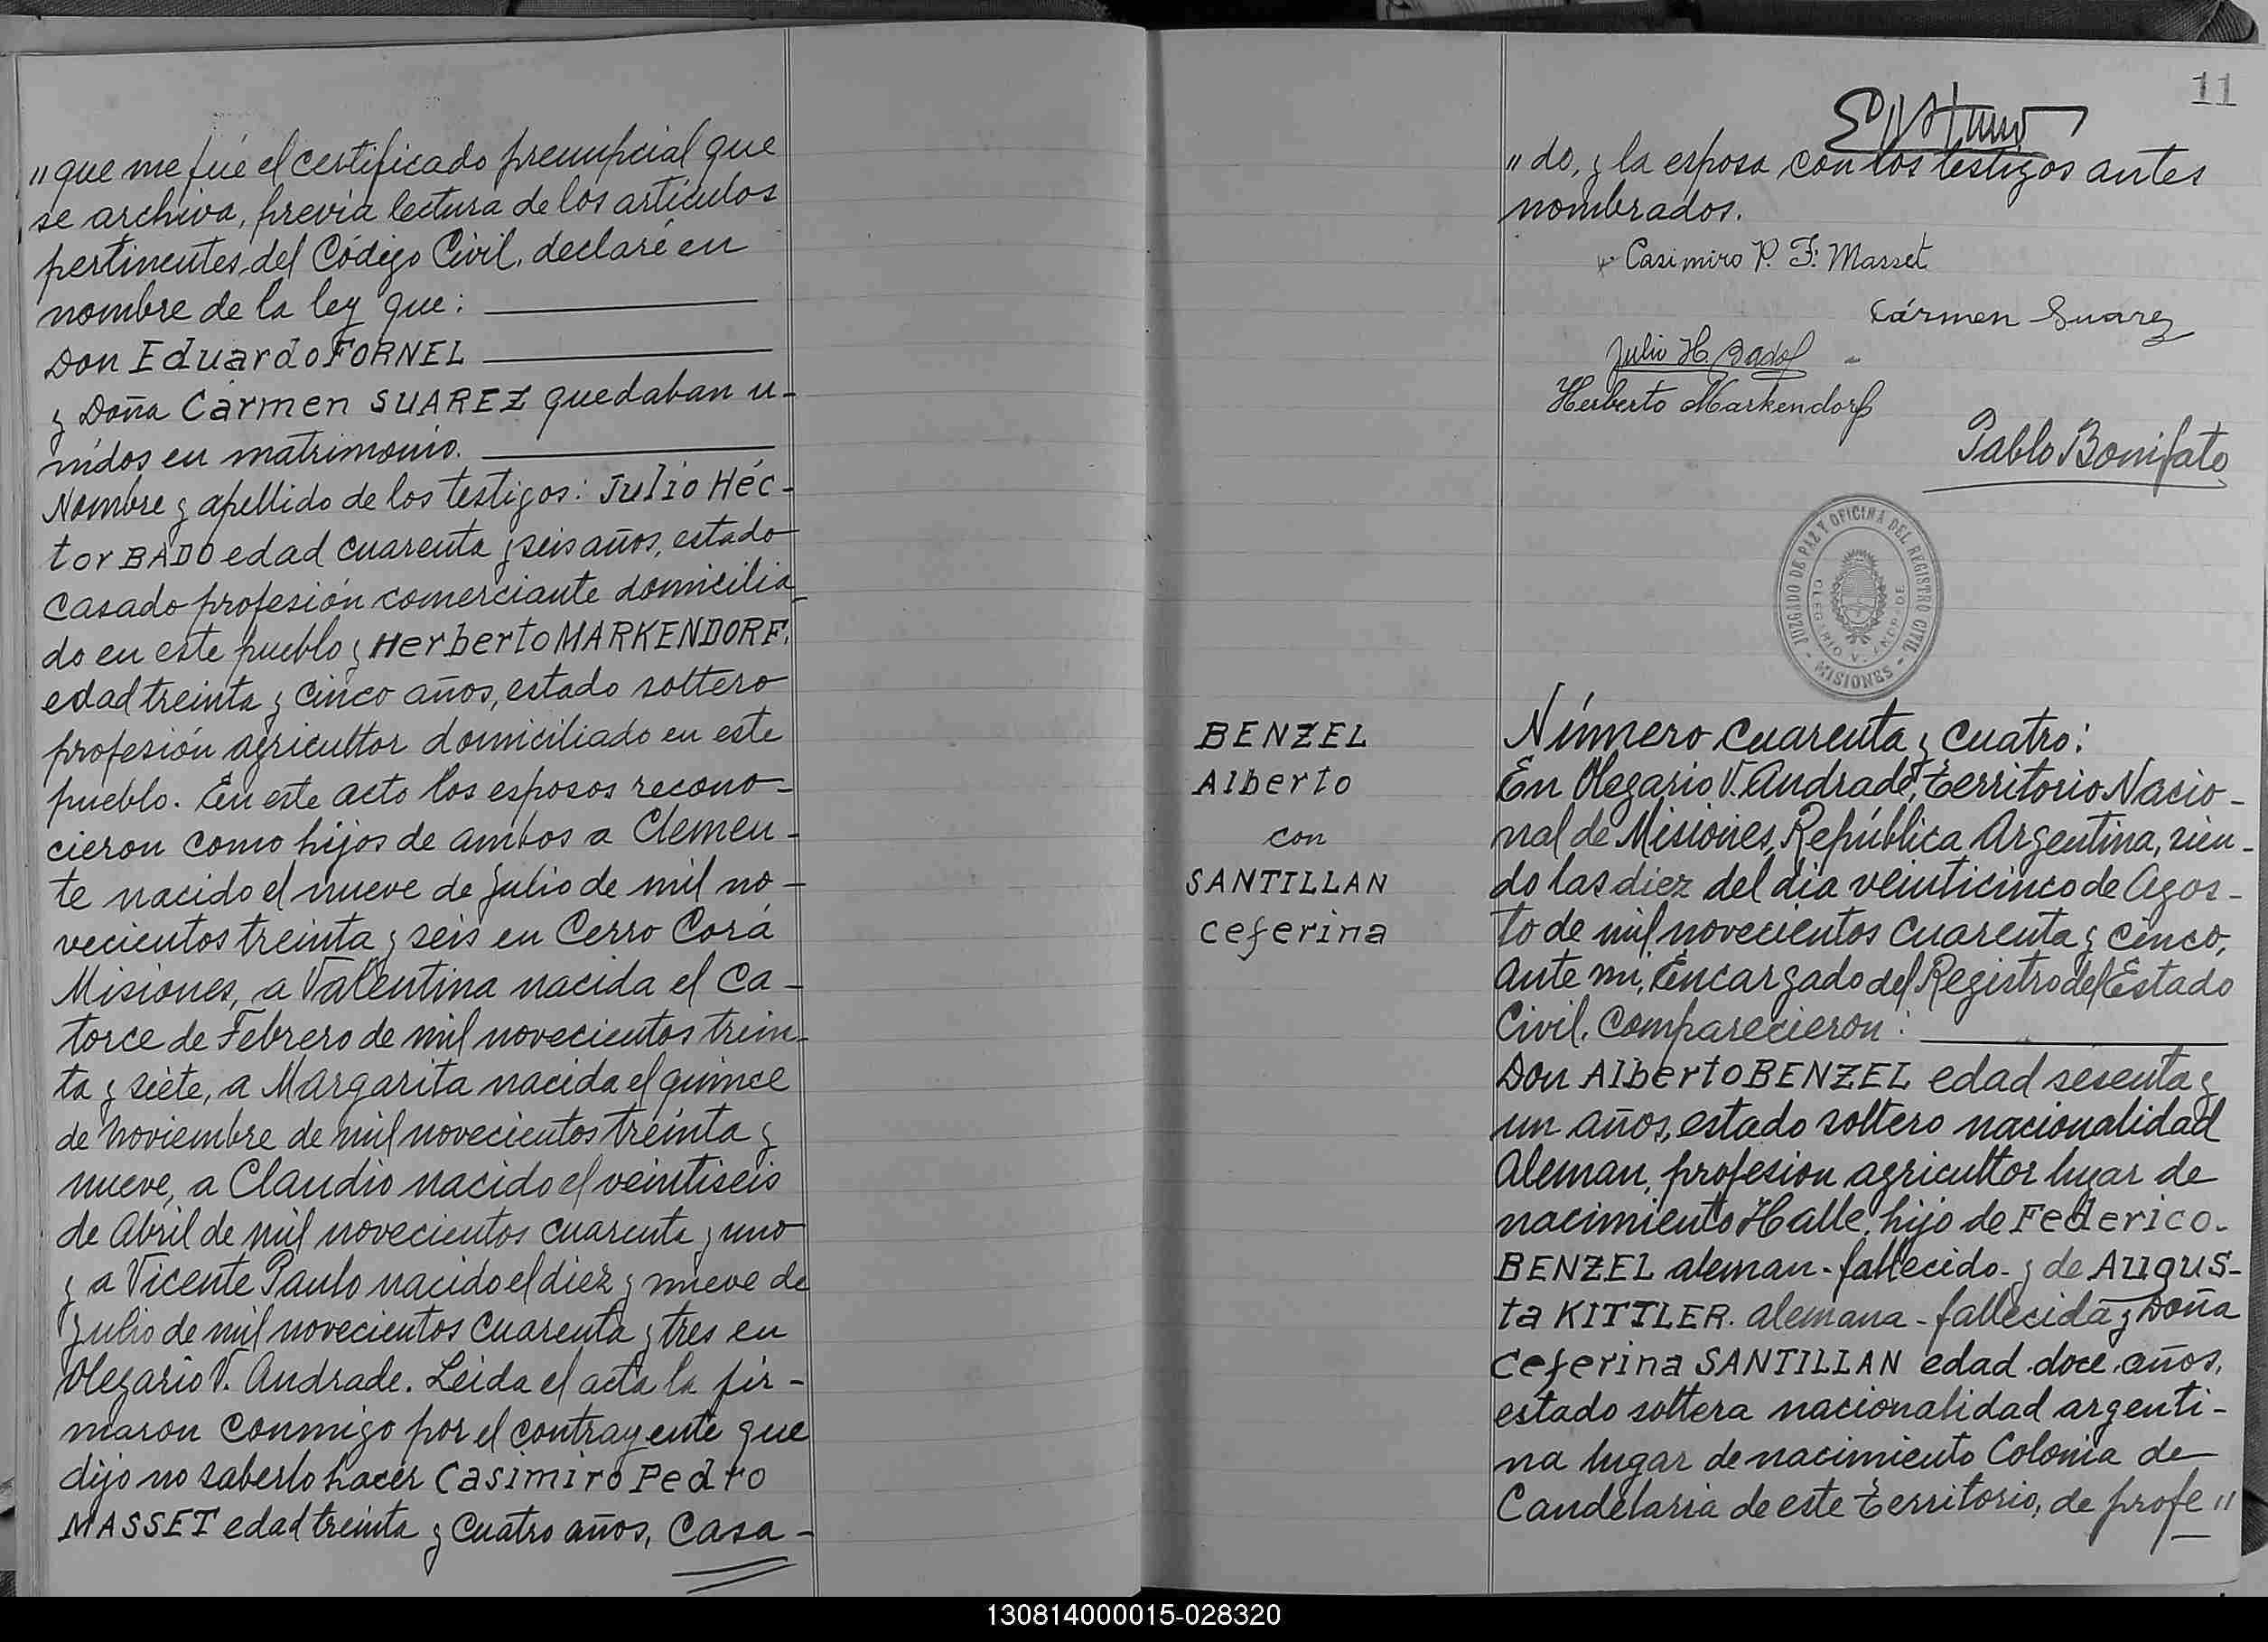 „ que me fué el certificado prenupcial que
se archiva, previa lectura de los artículos
pertinentes del Código Civil, declaré en
nombre de la ley que:
Don Eduardo FORNEL
y Doña Carmen SUAREZ quedaban u-
nidos en matrimonio.
Nombre y apellido de los testigos: Julio Héc-
tor BADO edad cuarenta y seis años, estado
casado profesión comerciante domicilia-
do en este pueblo y Herberto MARKENDORF,
edad treinta y cinco años, estado soltero
profesión agricultor domiciliado en este
pueblo. En este acto los esposos recono-
cieron como hijos de ambos a Clemen-
te nacido el nueve de Julio de mil no-
vecientos treinta y seis en Cerro Corá
Misiones, a Valentina nacida el ca-
torce de Febrero de mil novecientos trein-
ta y siete, a Margarita nacida el quince
de Noviembre de mil novecientos treinta y
nueve, a Claudio nacido el veintiseis
de Abril de mil novecientos cuarenta y uno
y a Vicente Paulo nacido el diez y nueve de
Julio de mil novecientos cuarenta y tres en
Olegario V. Andrade. Leida el acta la fir-
maron conmigo por el contrayente que
dijo no saberlo hacer Casimiro Pedro
MASSET edad treinta y cuatro años, casa-
11
„ do, y la esposa con los testigos antes
nombrados.
Casimiro P. F. Masset
Cármen Suarez
Julio H. Bado
Herberto Markendorf
Pablo Bonifato
JUZGADO DE PAZ Y OFICINA DEL REGISTRO CIVIL
OLEGARIO V. ANDRADE
- MISIONES -
BENZEL
Alberto
con
SANTILLAN
Ceferina
Número cuarenta y cuatro:
En Olegario V. Andrade, Territorio Nacio-
nal de Misiones, República Argentina, sien-
do las diez del dia veinticinco de Agos-
to de mil novecientos cuarenta y cinco,
ante mi, Encargado del Registro del Estado
Civil, comparecieron:
Don Alberto BENZEL edad sesenta y
un años, estado soltero nacionalidad
Aleman, profesion agricultor lugar de
nacimiento Halle, hijo de Federico
BENZEL aleman - fallecido - y de Augus-
ta KITTLER. alemana - fallecida y Doña
Ceferina SANTILLAN edad doce años,
estado soltera nacionalidad argenti-
na lugar de nacimiento Colonia de
Candelaria de este Territorio, de profe „
130814000015-028320